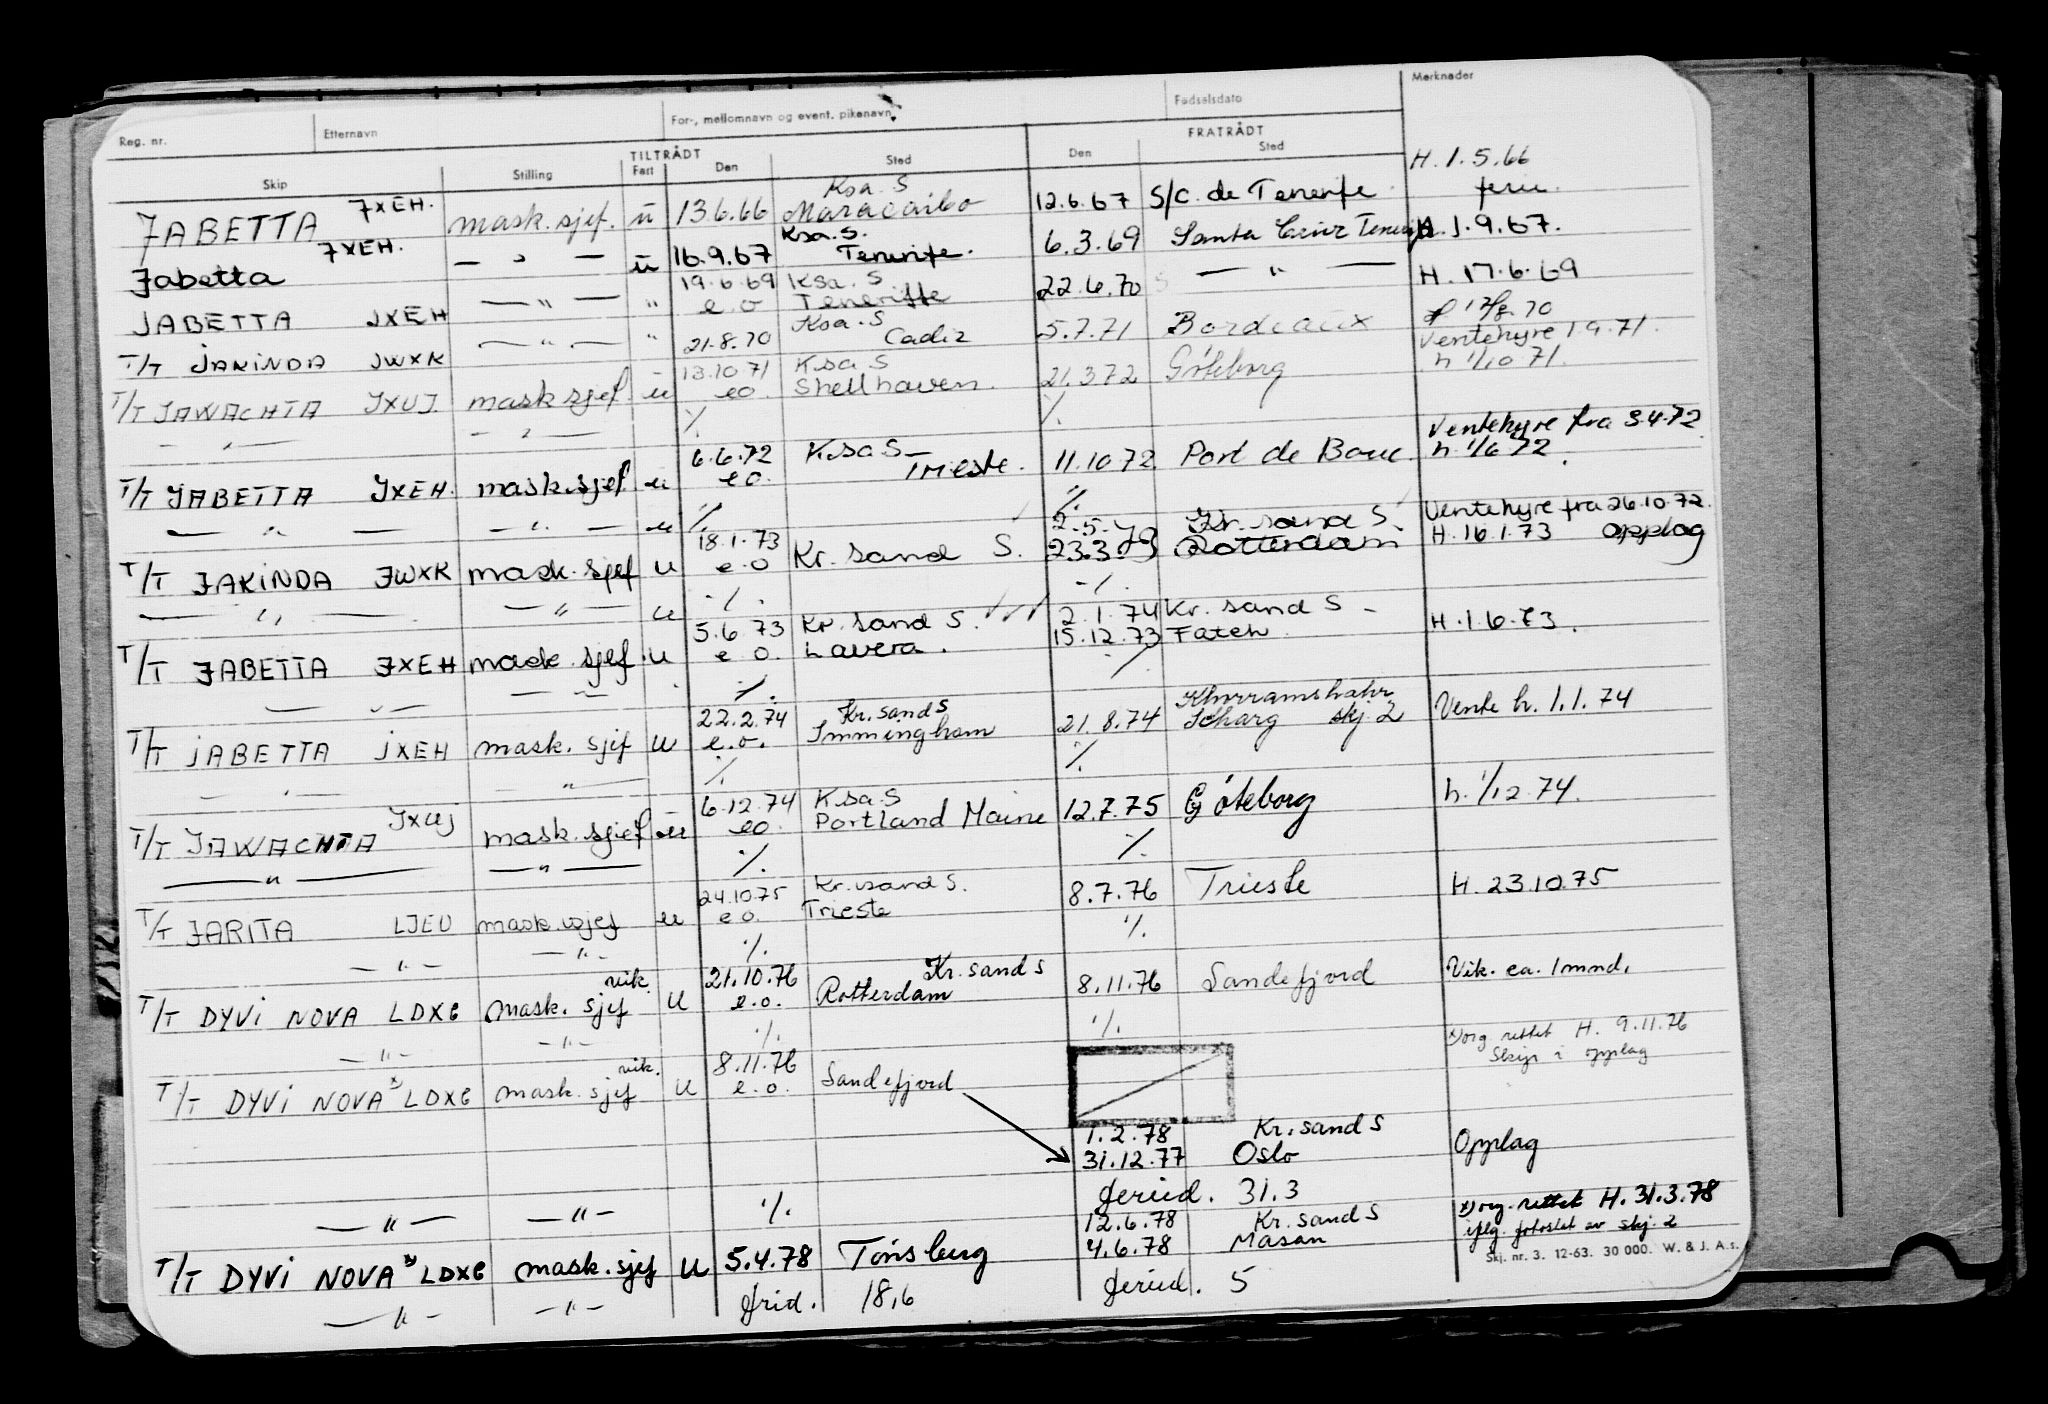 Reg. nr. Etternavn For-, mellomnavn og event. pikenavn Fødselsdato Merknader
TILTRÅDT FRATRÅDT
Skip Stilling Fart Den Sted Den Sted
H. 1.5.66
JABETTA JXEH. mask.sjef. u 13.6.66 Ksa. S Maracaibo 12.6.67 S/C. de Tenerife ferie.
Jabetta JXEH. — " — u 16.9.67 Ksa. S. Tenerife. 6.3.69 Santa Cruz Tenerife H. 1.9.67.
JABETTA JXEH — " — " 19.6.69 e.o Ksa. S Teneriffe 22.6.70 — " — H. 17.6.69
T/T JAKINDA JWXK — " — " 21.8.70 Ksa. S Cadiz 5.7.71 Bordeaux 17/8.70
Ventehyre 1 9.71.
T/T JAWACHTA JXUJ mask sjef u 13.10 71 eo. Ksa S Shellhaven. 21.3 72 Göteborg h 1/10 71.
— " — — " — %. %.
Ventehyre fra 3.4.72
T/T JABETTA JXEH. mask.sjef u 6.6.72 eo. Ksa S Trieste. 11.10 72 Port de Bouc. h 1/6 72.
— " — — " — u %. %. Ventehyre fra 26.10.72.
T/T JAKINDA JWXK mask. sjef u 18.1.73 e.o Kr. sand S. 2.5.73 Kr. sand S. 23.3.73 Rotterdam H. 16.1.73 opplag
— " — — " — u %. %
T/T JABETTA JXEH mask. sjef. u 5.6.73 e.o. Kr. sand S. Lavera. 2.1.74 Kr. sand S - 15.12.73 Fateh. H. 1.6.73.
— " — — " — %. %
T/T JABETTA JXEH mask. sjef u 22.2.74 e.o. Kr. sand S Immingham 21.8.74 Khurramshahr skj. 2 Vente h. 1.1.74
— " — — " — %. %.
T/T JAWACHTA JXUJ mask. sjef u 6.12.74 eo. Ksa S Portland Maine 12.7.75 Göteborg h. 1/12.74.
— " — — " — %. %.
T/T JARITA LJEU mask. sjef u 24.10.75 e o. Kr. sand S. Trieste 8.7.76 Trieste H. 23.10.75
— " — — " — %. %.
T/T DYVI NOVA LDXG mask. sjef vik. u 21.10.76 e.o. Kr. sand S Rotterdam 8.11.76 Sandefjord Vik. ca. 1 mnd.
— " — — " — %. %.
x) org rettet H. 9.11.76
Skip i opplag
T/T DYVI NOVA x) LDXG mask. sjef vik. u 8.11.76 e.o. Sandefjord
1.2.78 Kr. sand S
31.12.77 Oslo Opplag
— " — — " — %. 31.3
x) org. rettet H. 31.3.78
iflg. fotostat av skj. 2
12.6.78 Kr. sand S
T/T DYVI NOVA x) LDXG mask. sjef u 5.4.78 Tönsberg 4.6.78 Masan
— " — — " — 18,6 5
Skj. nr. 3. 12-63. 30 000. W. & J. A.s.